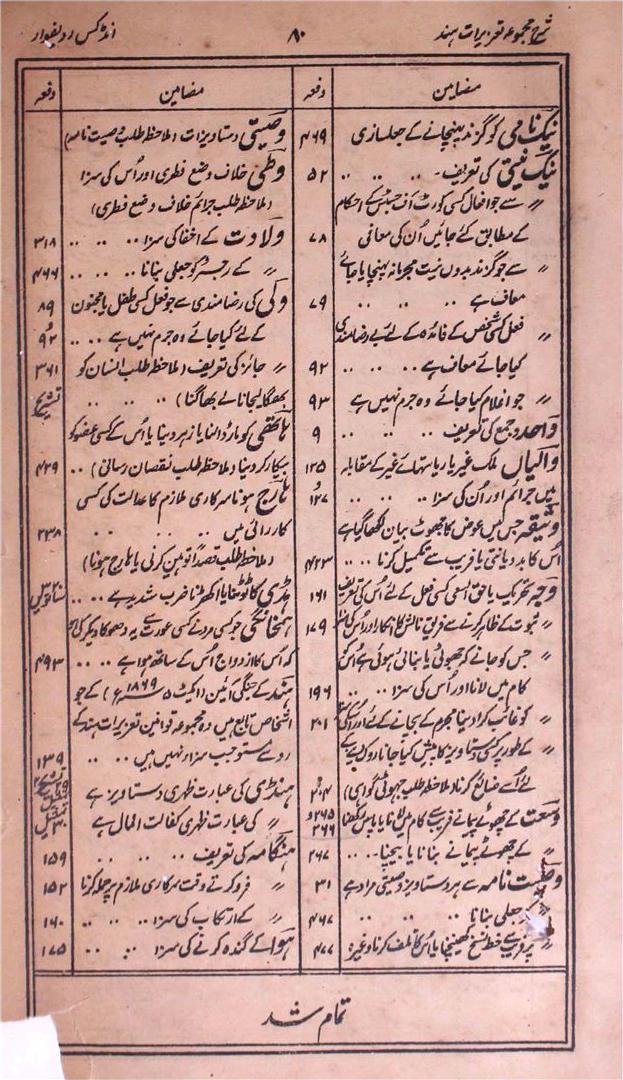 شرح مجموعہ تعزیرات ہند
۸۰
انڈکس ردیفوار
مضامین
دفعہ
نیک نامی کو گزند پہنچانے کے جعلسازی ۴۶۹
نیک نیتی کی تعریف ۔ ۵۲
〃 سے جو افعال کسی کورٹ آف جسٹس کے احکام
کے مطابق کئے جائیں اُن کی معافی ۷۸
〃 سے جو گزند بدون نیت مجرمانہ پہنچایا جائے
معاف ہے ۷۹
〃 فعل کسی شخص کے فائدہ کے لئے بے رضامندی
کیا جائے معاف ہے ۹۲
〃 جو اعلام کیا جائے وہ جرم نہیں ہے ۹۳
واحد و جمع کی تعریف ۹
والیان ملک غیر یا ریاستہائے غیر کے مقابلہ ۱۲۵
میں جرائم اور اُن کی سزا و ۱۲۷
وثیقہ جس میں عوض کا جھوٹ بیان لکھا گیا ہے
اُس کا بد دیانتی یا فریب سے تکمیل کرنا ۴۲۳
وجہ تحریک یا حق السعی کسی فعل کے لئے اُس کی تعریف ۱۶۱
〃 ثبوت کے ظاہر کرنے سے انکار اور اُس کی سزا ۱۷۹
〃 جس کو جانے کہ جھوٹی یا بنائی ہوئی ہے اُس کو
کام میں لانا اور اُس کی سزا ۱۹۶
〃 کو غائب کرا دینا مجرم کے بچانے کے لئے ۲۰۱
〃 کے طور پر کسی دستاویز کا پیش کیا جانا
لئے اُسے ضائع کرنا (ملاحظہ طلب جھوٹی گواہی) ۲۰۴
وسعت کے جھوٹے پیمانے فریب سے کام میں لانا یا پاس رکھنا ۲۶۵ و ۲۶۶
〃 کے جھوٹے پیمانے بنانا یا بیچنا ۲۶۷
وصیت نامہ سے ہر دستاویز وصیتی مراد ہے ۳۱
〃 جعلی بنانا ۴۶۷
〃 پر فریب سے خط نسخ کھینچنا یا اُس کا تلف کرنا وغیرہ ۴۷۷
مضامین
دفعہ
وصیتی دستاویزات (ملاحظہ طلب وصیت نامہ)
وطی خلاف وضع فطری اور اُس کی سزا
(ملاحظہ طلب جرائم خلاف وضع فطری)
ولادت کے اخفا کی سزا ۳۱۸
〃 کے رجسٹر کو جعلی بنانا ۴۶۶
ولی کی رضامندی سے جو فعل کسی طفل یا مجنون ۸۹
کے لئے کیا جائے وہ جرم نہیں ہے و ۹۲
〃 جائز کی تعریف (ملاحظہ طلب انسان کو ۳۶۱
بھگا لیجانا لے بھاگنا) تشریح
ہاتھی کو مار ڈالنا یا زہر دینا یا اُس کے کسی عضو کو
بیکار کر دینا (ملاحظہ طلب نقصان رسانی) ۴۲۹
ہارج ہونا سرکاری ملازم کا عدالت کی کسی
کارروائی میں ۲۲۸
(ملاحظہ طلب قصداً توہین کرنی یا ہارج ہونا)
ہڈی کا ٹوٹنا یا اکھڑنا ضرب شدید ہے
ہمخانگی جو کسی مرد نے کسی عورت سے یہ دھوکا دیکر کی ہو
کہ اُس کا ازدواج اُس کے ساتھ ہوا ہے ۴۹۳
ہند کے جنگی آئین (ایکٹ ۵ ۱۸۶۹ء) کے جو
اشخاص تابع ہیں وہ مجموعہ قوانین تعزیرات ہند کے
رو سے مستوجب سزا نہیں ہیں ۱۳۹
ہنڈی کی عبارت ظہری دستاویز ہے
〃 کی عبارت ظہری کفالت المال ہے ۳۰
ہنگامہ کی تعریف ۱۵۹
〃 فرو کرتے وقت سرکاری ملازم پر حملہ کرنا ۱۵۲
〃 کے ارتکاب کی سزا ۱۶۰
ہوا کے گندہ کرنے کی سزا ۱۷۵
تمام شد